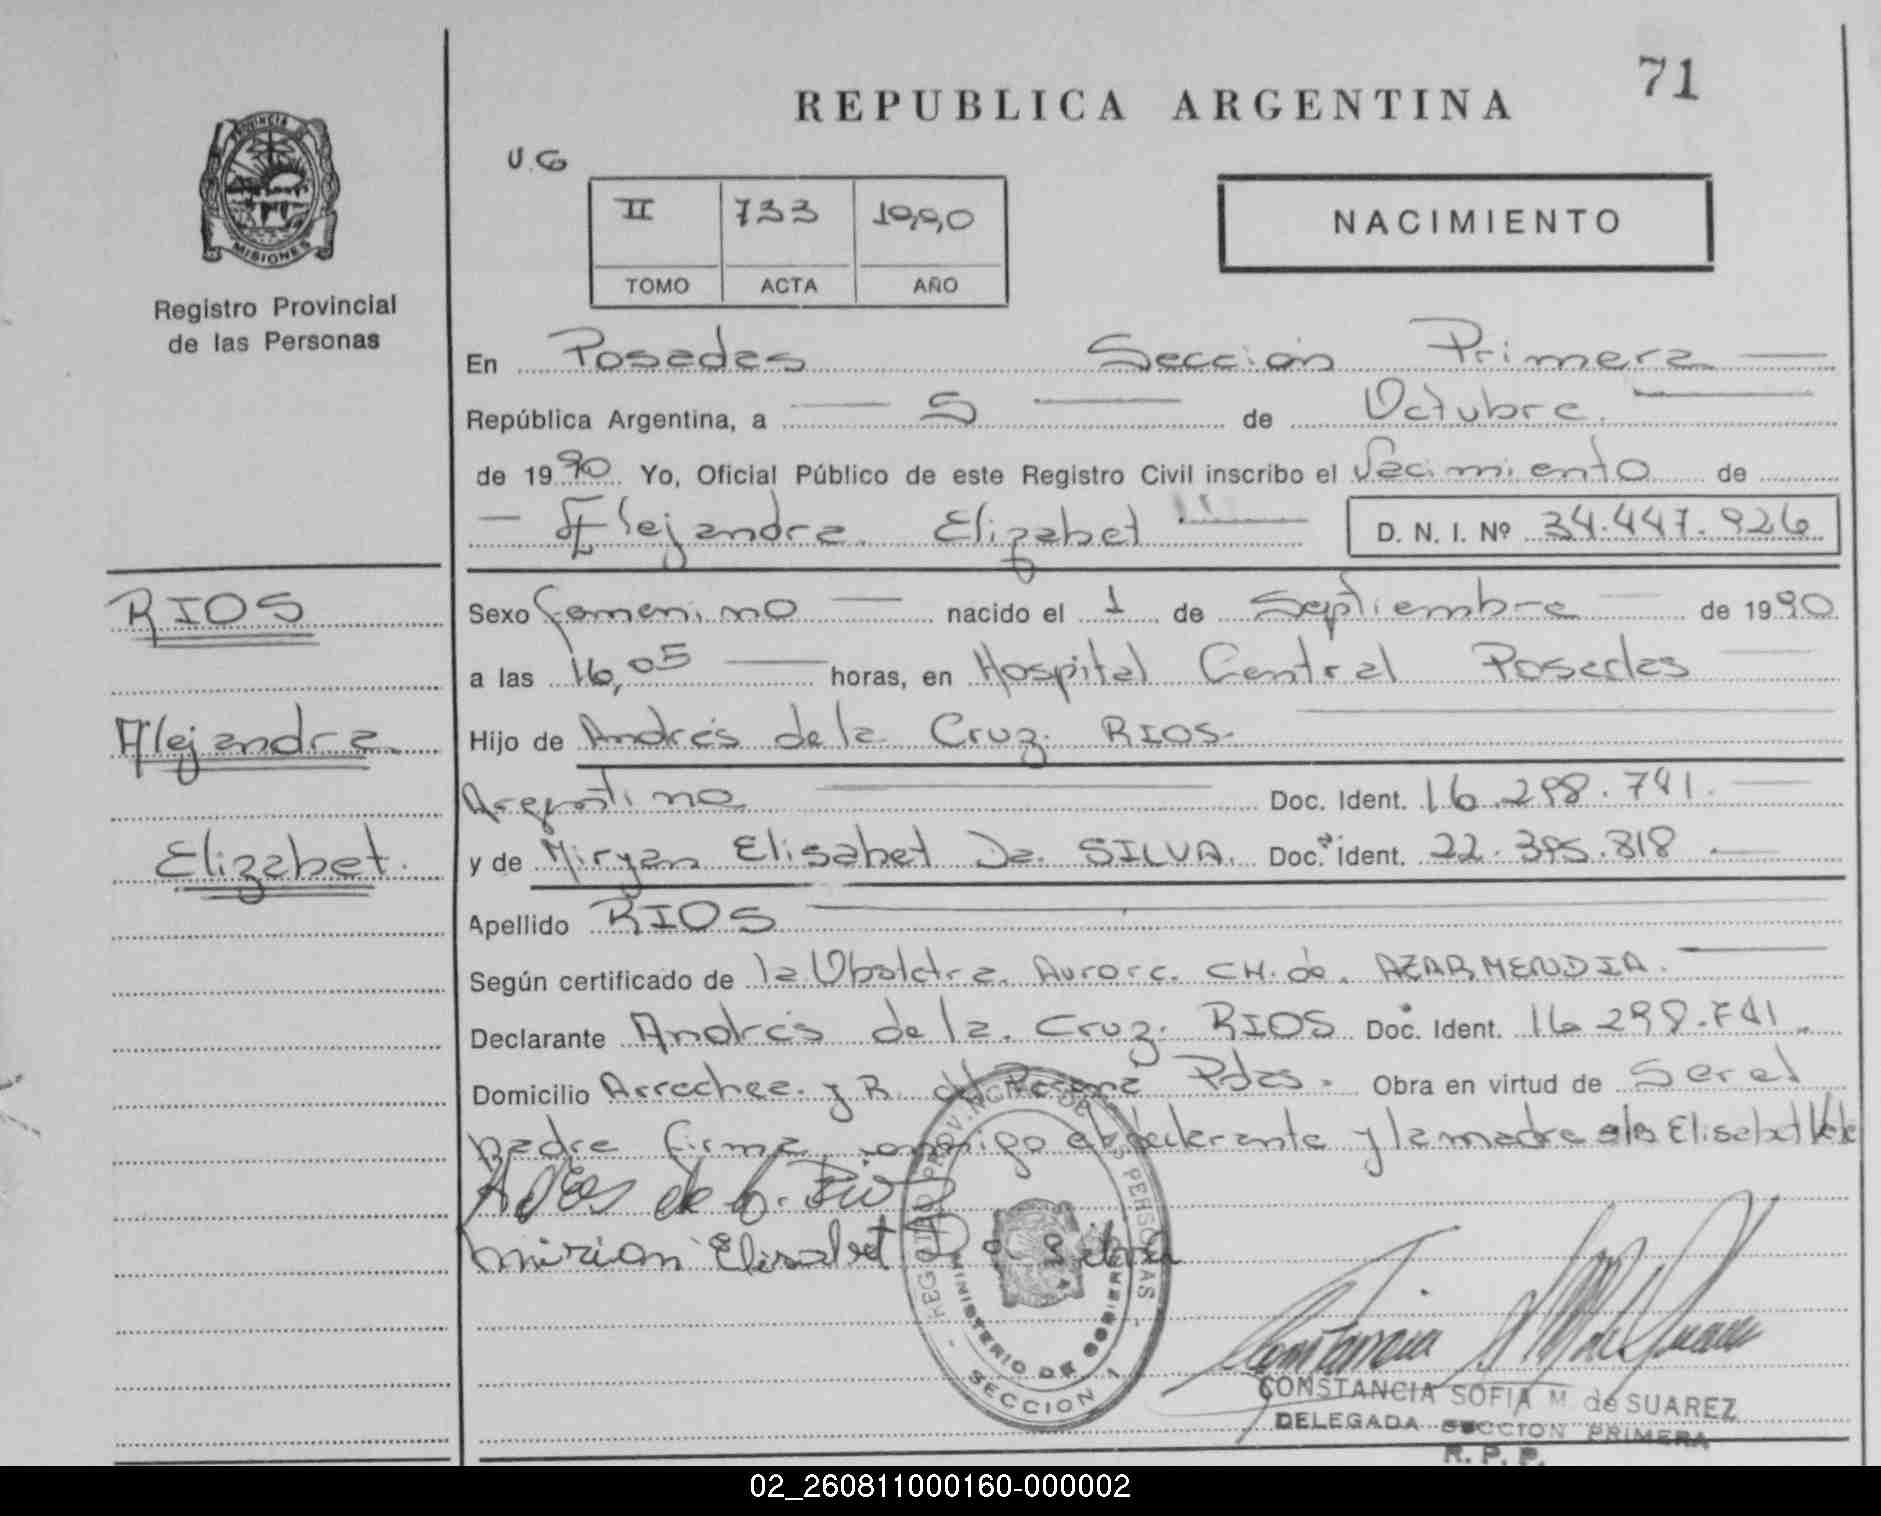 71
REPUBLICA ARGENTINA
U.G
PROVINCIA DE
MISIONES
Registro Provincial
de las Personas
II 733 1990
TOMO ACTA AÑO
NACIMIENTO
En Posadas Sección Primera
República Argentina, a 5 de Octubre.
de 1990 Yo, Oficial Público de este Registro Civil inscribo el Nacimiento de
Alejandra Elizabet D. N. I. Nº 34.447.926
RIOS
Alejandra
Elizabet.
Sexo femenino nacido el 1 de Septiembre de 1990
a las 16,05 horas, en Hospital Central Posadas
Hijo de Andrés de la Cruz RIOS.
Argentino Doc. Ident. 16.298.741.
y de Miryan Elisabet Da SILVA. Doc. Ident. 22.395.818
Apellido RIOS
Según certificado de la Obstetra. Aurora CH. de AZARMENDIA.
Declarante Andrés de la Cruz RIOS Doc. Ident. 16.298.741.
Domicilio Arrechea y R. del Pdas. Obra en virtud de Ser el
padre firma conmigo el declarante y la madre Elisabet Vale
Mirian Elisabet Da Silva
REGISTRO PROVINCIAL DE LAS PERSONAS
MINISTERIO DE GOBIERNO
SECCION 1
CONSTANCIA SOFIA M. de SUAREZ
DELEGADA SECCION PRIMERA
R. P. P.
02_260811000160-000002